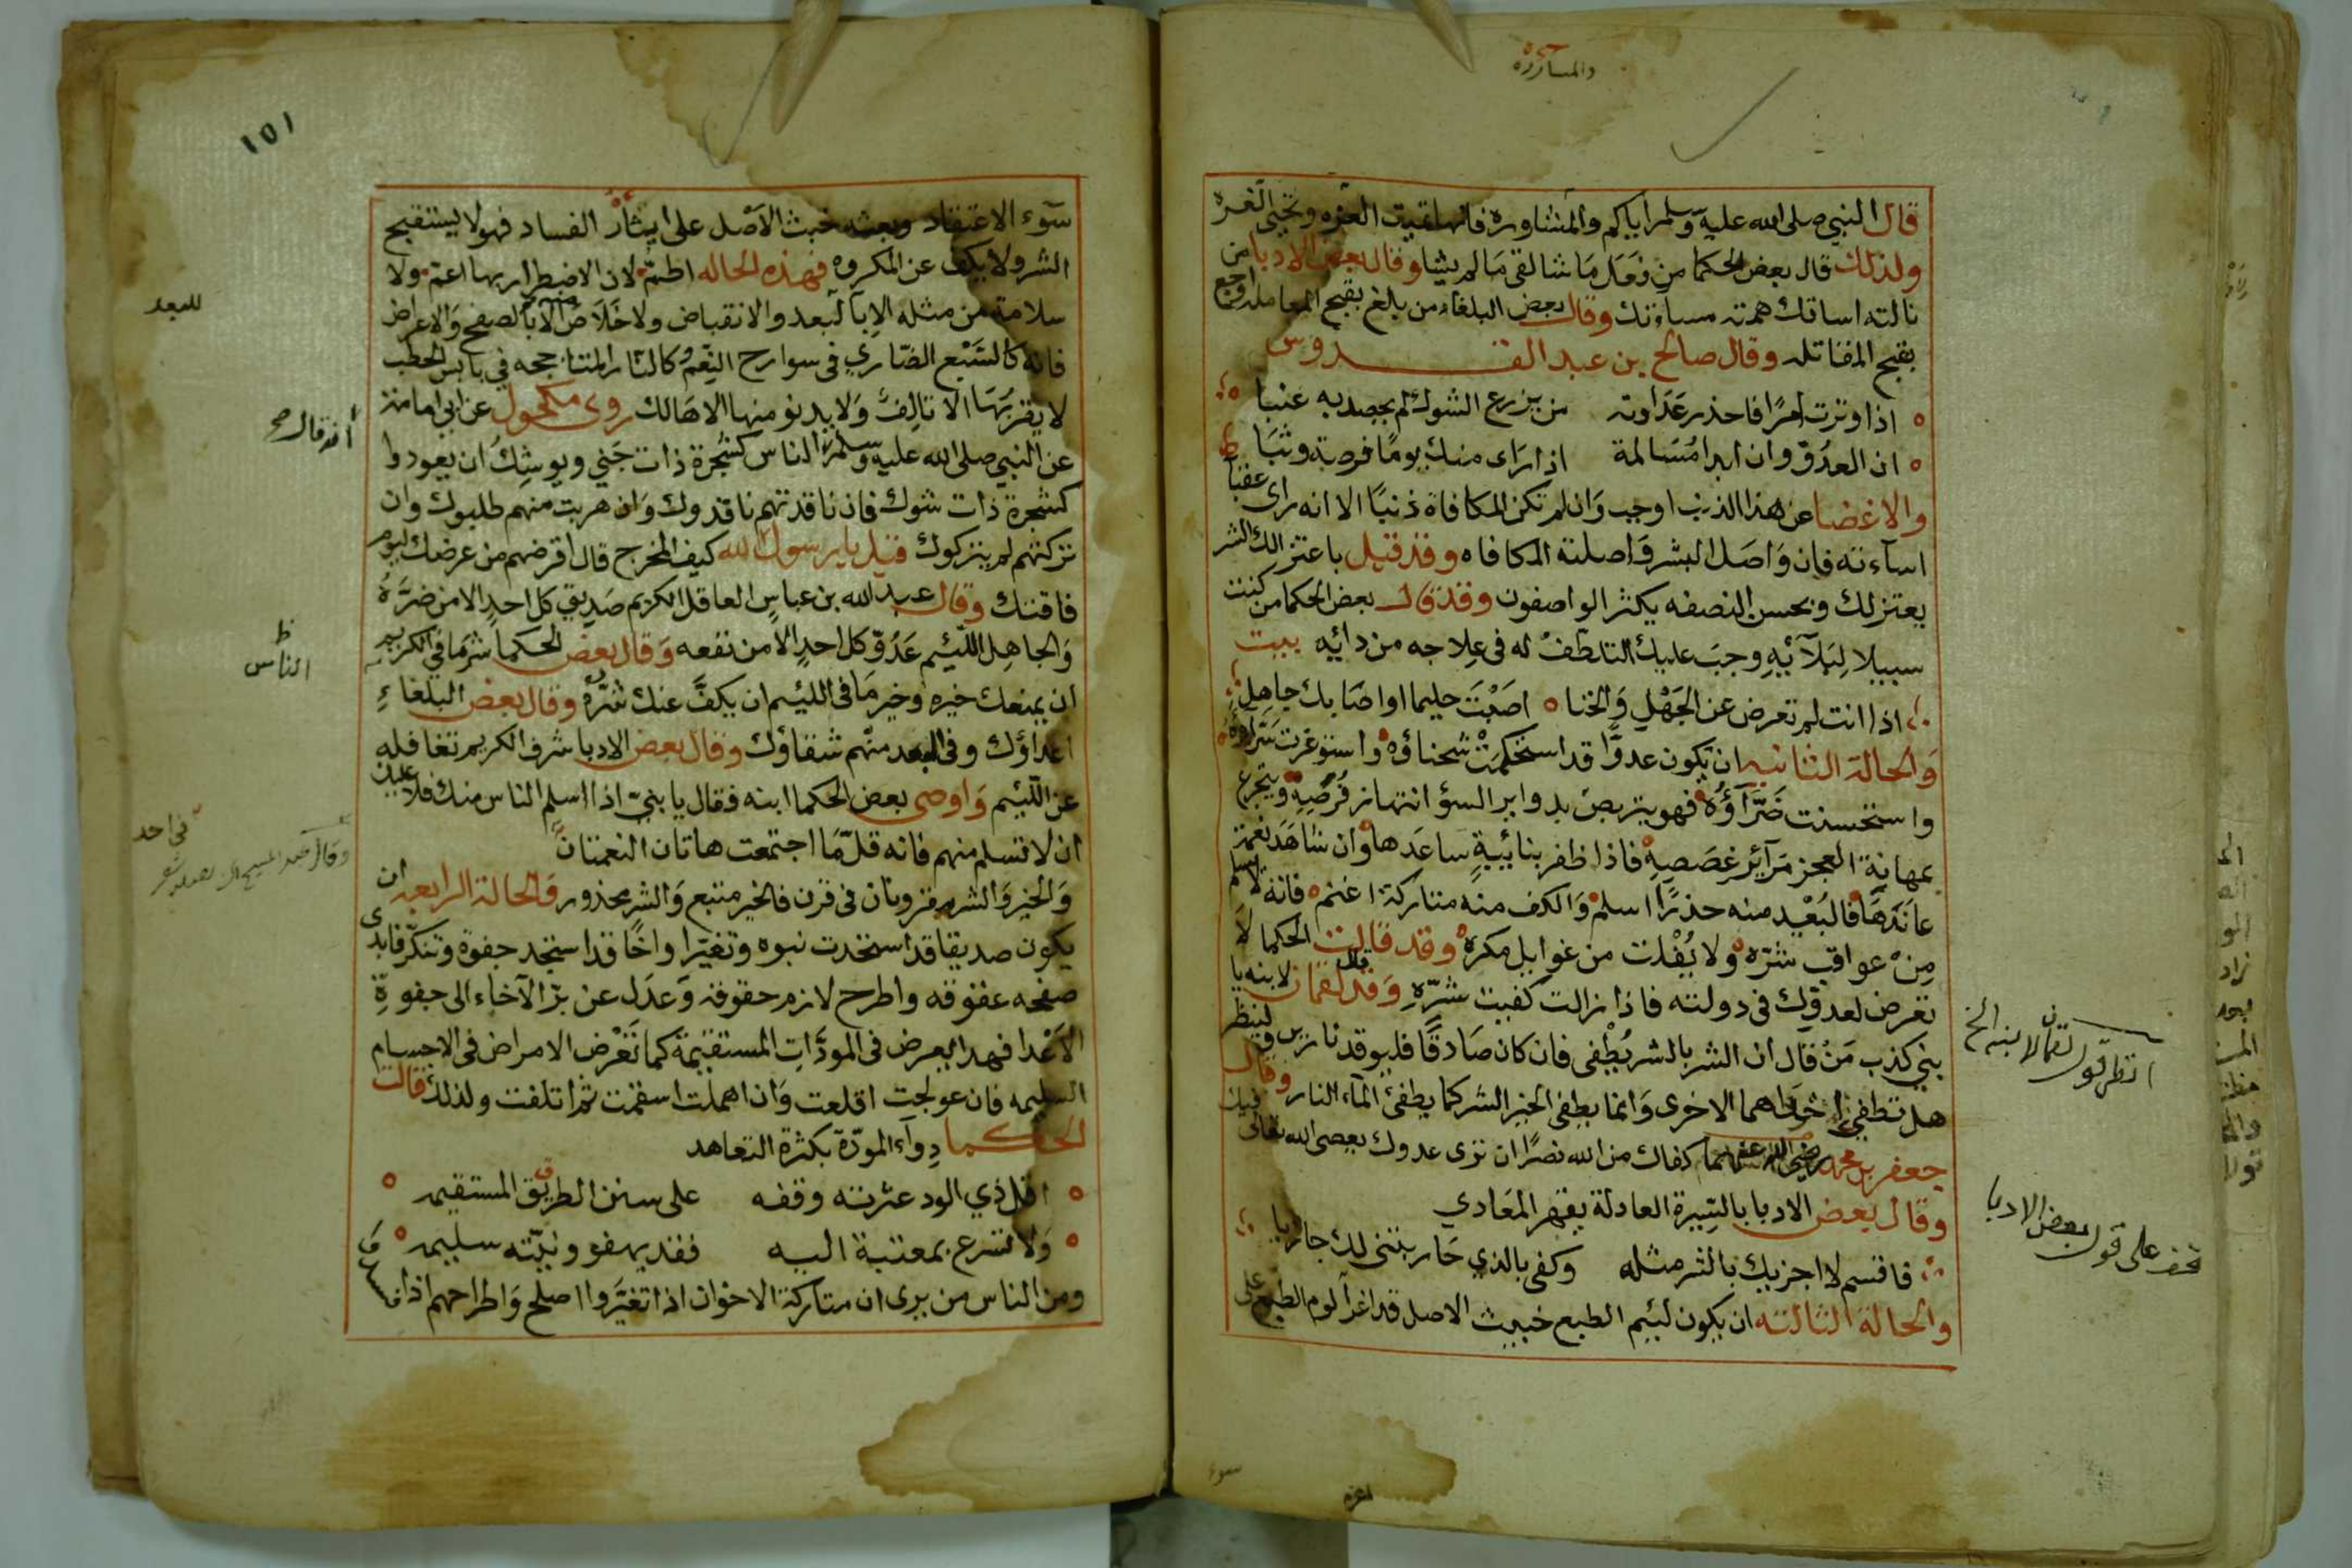 والمسآررة
قال النبي صلى الله عليه وسلم اياكم والمشاورة فانها تميت الغرة وتحيي الغرة
ولذلك قال بعض الحكما من فعل ما شا لقى ما لم يشا وقال بعض الادبا من
نالته اساتك همته مساءتك وقال بعض البلغاء من يلغ بقبح المعاملة اوجع
بقبح المقاتله وقال صالح بن عبد القدوس
اذا وترت امرًا فاحذر عداوته من يزرع الشوك لم يحصد به عنبا
ان العدوّ وان ابدا مُسَالمة اذا رَاى منك يومًا فرصة وثبَا
والاغضا عن هذا الذنب اوجب وَان لم تكن المكافاة ذنبًا الا انه راى عقبا
اسآءته فان وَاصَل الشر وَاصلته المكافاه وقد قيل باعتزالك الشر
يعتزلك وبحسن النصفه يكثر الواصفون وقد قال بعض الحكما من كنت
سببيلا لِبَلآئِهِ وجبَ عليك التلطّفُ له في عِلاجه من دائِه بيت
اذا انت لم تعرض عن الجَهْلِ وَالخنا اصَبْتَ حليما او اصَابك جاهِل
وَالحالة الثانيه ان يكون عدوًّا قد استحكمَتْ شحناؤه واستوعرت سَرّاؤه
واستخسنت ضَرّآؤُه فهو يتربصُ بدوابر السؤ انتهاز فُرَصِهِ ويتجرع
بمهانة العجز مَرآئِر غِصَصِهِ فاذا ظفر بنائِبةٍ سَاعَدها وان شاهَدَ نعمة
عاندَهَا فالبُعْد منه حذرًا اسلم وَالكف منه متاركة اغنم فانه لا يسلم
مِنْ عواقب شرّه ولا يُفْلت من غوايل مكره وقد قالت الحكما لَا
تعرض لعدوّك في دولته فاذا زالت كفيت شرّهِ وَقد قال لقمان لابنه يا
بني كذب مَنْ قال ان الشر بالشر يُطْفى فان كان صَادقًا فليوقد نارين ولينظر
هل تطفئ احداهما الاخرى وَانما يطفى الخير الشر كما يطفئ المآء النار وقال
جعفر بن محمد رضي الله عنهما كفاك من الله نصرًا ان ترى عدوك يعصى الله تعالى فيك
وقال بعض الادبا بالسِّيرة العادلة يقهر المعَادي
فاقسم لا اجزيك بالشر مثله وكفى بالذي حَاربتني لك جازيا
والحالة الثالثه ان يكون لئيم الطبع خبيث الاصل قد اغرآ لوم الطبع على
انظر قول لقمان لابنه الخ
قف على قول بعض الادبا
سوء
١٥١
سوء الاعتقاد وبعثه خبث الاَصْل على ايثار الفساد فهو لا يستقبح
الشر ولا يكف عن المكروه فهذه الحاله اطمّ لان الاضطرار بها اعمّ ولا
سلامة من مثله الا بالبعد والانقباض ولا خَلَاص منه الا بالصفح وَالاعراض
فانه كالسَّبْع الضّاري في سوارح النِعَم وكالنار المتاججه في يابس الحطب
لا يقربُهَا الا تالفٌ وَلا يدنو منها الا هَالك روى مكحول عن ابي امامة
عن النبي صلى الله عليه وسلم الناس كشجرة ذات جَني ويوشِكُ ان يعودوا
كشجرة ذات شوك فان ناقدتهم ناقدوك وَان هربت منهم طلبوك وان
تركتهم لم يتركوك قيل يا رسول الله كيف المخرج قال اقرضهم من عرضك ليوم
فاقتك وقال عبد الله بن عباس العاقل الكريم صَديق كل احدٍ الا من ضرّهُ
وَالجاهِل اللئيم عَدُوّ كل احدٍ الا من نفعه وَقال بعض الحكما شر مَا في الكريم
ان يمنعك خيره وخير مَا في اللئيم ان يكفَّ عنك شرّهُ وقال بعض البلغاءِ
اعداؤك وفي البعد منهم شفاؤك وقال بعض الادبا شرف الكريم تغافله
عن اللئيم وَاوصى بعض الحكما ابنه فقال يا بنيّ اذا اسلم الناس منك فلا عليك
ان لا تسلم منهم فانه قلّمَا اجتمعت هاتان النعمتان
وَالخير وَالشر مقرونان في قرن فالخير متبع وَالشر محذور وَالحالة الرابعه ان
يكون صديقا قد استحدث نبوه وتغيّرا واخًا قد استجد جفوة وتنكّر فابدى
صفحه عقوقه واطرح لازم حقوقه وَعدَل عن برّ الآخاء الى جفوةِ
الاَعْدا فهدا يعرض في المودَّاتِ المستقيمة كما تَعْرض الامراض في الاجسام
السليمه فان عولجت اقلعت وَان اهملت اسقمت ثم اتلفت ولذلك قالت
الحكما دِوآء المودّة بكثرة التعاهد
اقل ذي الود عثرته وقفه على سنن الطريق المستقيمه
وَلا تسرع بمعتبة اليه فقد يهفو ونيّته سليمه
ومن الناس من يرى ان متاركة الاخوان اذا تغيَّروا اصلح وَاطراحهم اذا فسدوا
للبعد
انه قال صح
ظ
الناس